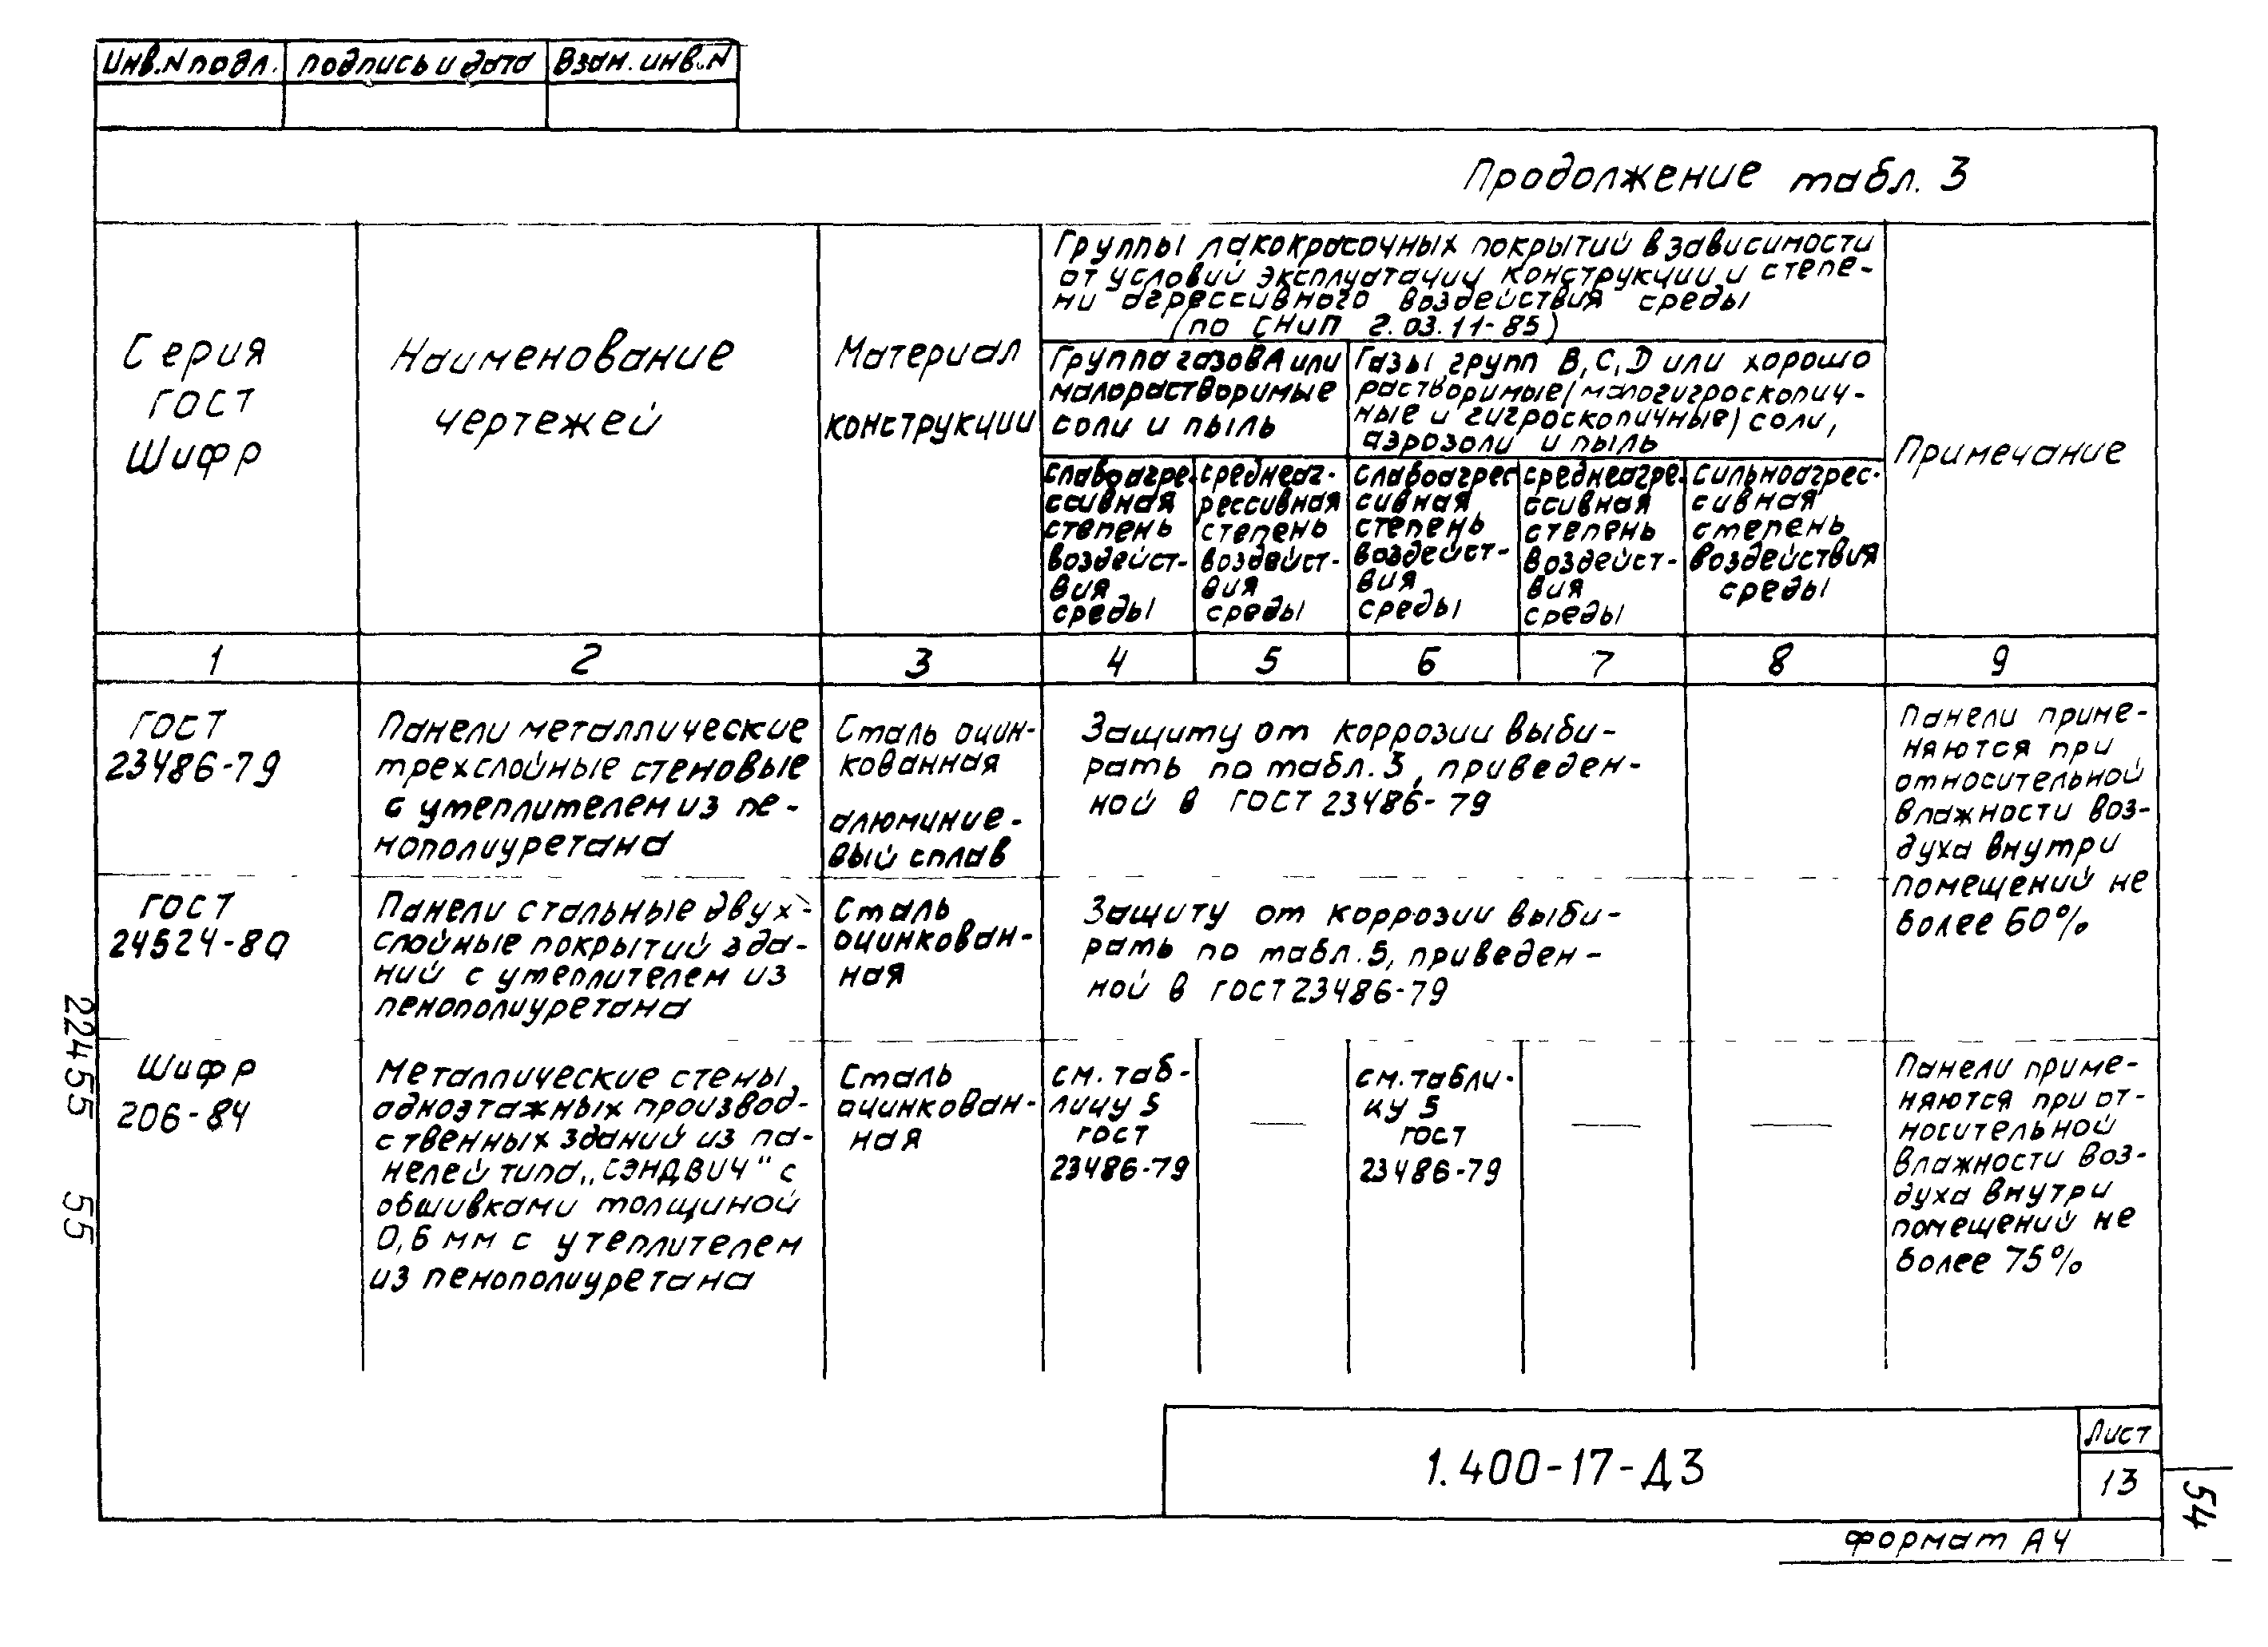 Инв.N подл. подпись и дата Взам. инв.N
Продолжение табл. 3
Серия
ГОСТ
Шифр
Наименование
чертежей
Материал
конструкции
Группы лакокрасочных покрытий в зависимости
от условий эксплуатации конструкции и степе-
ни агрессивного воздействия среды
(по СНиП 2.03.11-85)
Группа газов А или
малорастворимые
соли и пыль
Газы групп В, С, D или хорошо
растворимые (малогигроскопич-
ные и гигроскопичные) соли,
аэрозоли и пыль
слабоагре-
ссивная
степень
воздейст-
вия
среды
среднеаг-
рессивная
степень
воздейст-
вия
среды
слабоагрес
сивная
степень
воздейст-
вия
среды
среднеагре-
ссивная
степень
воздейст-
вия
среды
сильноагрес-
сивная
степень
воздействия
среды
Примечание
1 2 3 4 5 6 7 8 9
ГОСТ
23486-79
Панели металлические
трехслойные стеновые
с утеплителем из пе-
нополиуретана
Сталь оцин-
кованная
алюминие-
вый сплав
Защиту от коррозии выби-
рать по табл. 3, приведен-
ной в ГОСТ 23486-79
Панели приме-
няются при
относительной
влажности воз-
духа внутри
помещений не
более 60%
ГОСТ
24524-80
Панели стальные двух-
слойные покрытий зда-
ний с утеплителем из
пенополиуретана
Сталь
оцинкован-
ная
Защиту от коррозии выби-
рать по табл. 5, приведен-
ной в ГОСТ 23486-79
Шифр
206-84
Металлические стены
одноэтажных производ-
ственных зданий из па-
нелей типа „СЭНДВИЧ" с
обшивками толщиной
0,6 мм с утеплителем
из пенополиуретана
Сталь
оцинкован-
ная
см. таб-
лицу 5
ГОСТ
23486-79
—
см. табли-
цу 5
ГОСТ
23486-79
—
—
Панели приме-
няются при от-
носительной
влажности воз-
духа внутри
помещений не
более 75%
22455 55
1.400-17-Д3
Лист
13
54
Формат А4